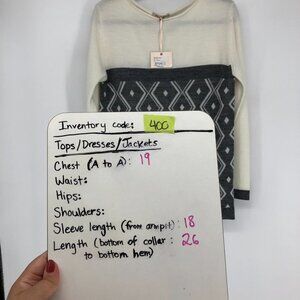 Inventory code: 400
Tops/Dresses/Jackets
Chest (A to A): 19
Waist:
Hips:
Shoulders:
Sleeve length (from armpit): 18
Length (bottom of collar: 26
to bottom hem)